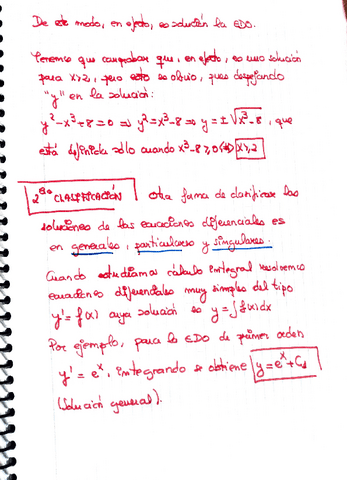 De este modo, en efecto, es solución la EDO.
Tenemos que comprobar que, en efecto, es una solución
para x>2, pero esto es obvio, pues despejando
"y" en la solución:
y²-x³+8=0 ⇒ y²=x³-8 ⇒ y=±√x³-8, que
está definida sólo cuando x³-8≥0 ⇔ x≥2
2ª CLASIFICACIÓN Otra forma de clasificar las
soluciones de las ecuaciones diferenciales es
en generales, particulares y singulares.
Cuando estudiamos cálculo integral resolvemos
ecuaciones diferenciales muy simples del tipo
y'=f(x) cuya solución es y=∫f(x)dx
Por ejemplo, para la EDO de primer orden
y'=eˣ, integrando se obtiene y=eˣ+C₁
(Solución general).